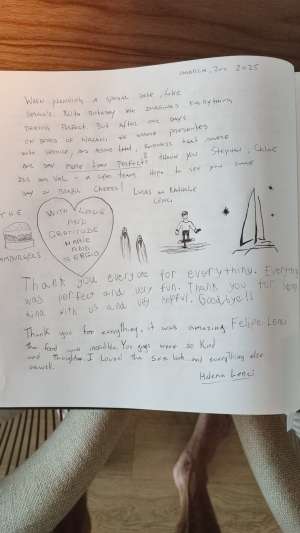 2025
When planning a special date, like
birthday we imagined everything
being perfect. But after days
on board of we assure ourselves
with service, awesome food, kindness that made
one say more than perfect!! Thank you Stephan, Chloe
and Val - a open team. Hope to see you some
day in Brazil Cheers! Lucas
Lenci
THE
HAMBURGERS
WITH LOVE
AND
GRATITUDE
MARIE
AND
SERGIO
Thank you everyone for everything. Everything
was perfect and very fun. Thank you for
with us and very helpful. Goodbye!!
Thank you for everything, it was amazing Felipe Lenci
the food was incredible. You guys were so kind
and thoughtful. I loved the and everything else
as well.
Helena Lenci